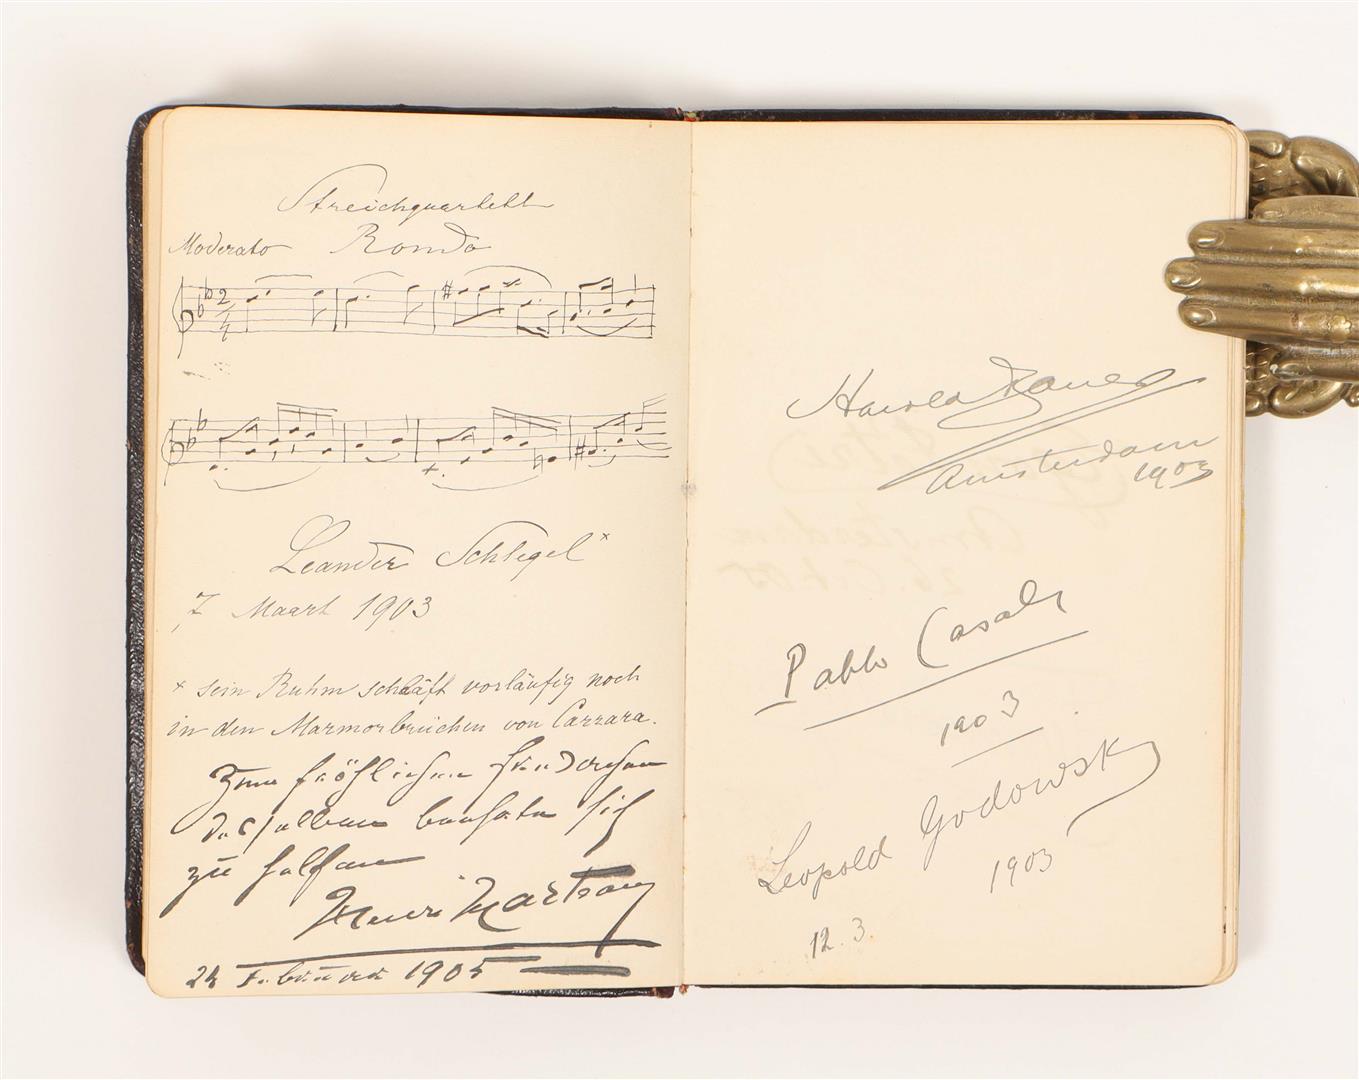 Streichquartett
Moderato Rondo
2/4
Leander Schlegel ×
7 Maart 1903
× sein Ruhm schläft vorläufig noch
in den Marmorbrüchen von Carrara.
Zum fröhlichen
album sich
zu helfen
Henri Marteau
24 Februar 1905
Harold Bauer
Amsterdam
1903
Pablo Casals
1903
Leopold Godowsky
1903
12. 3.